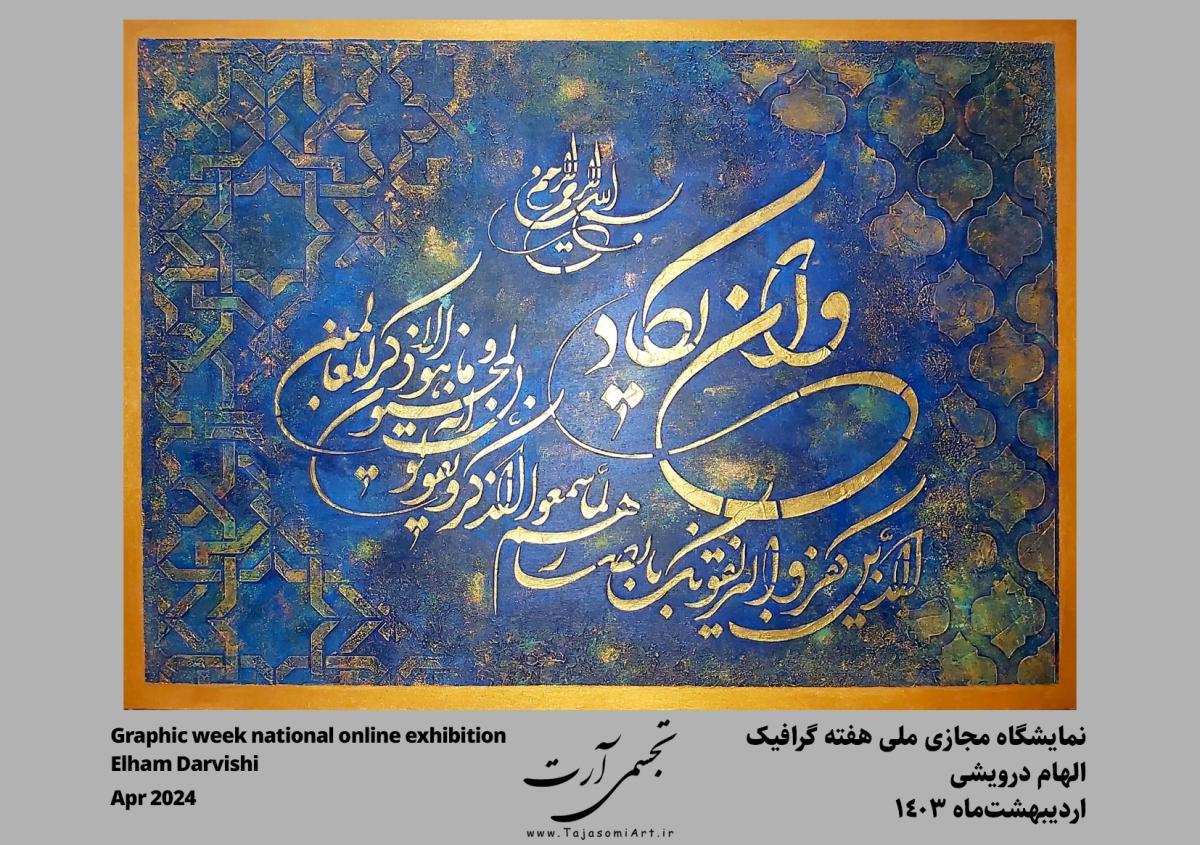 بسم الله الرحمن الرحیم
وان یکاد
الذین کفروا لیزلقونک بابصارهم
لما سمعوا الذکر و یقولون
انه لمجنون و
ما هو الا ذکر للعالمین
Graphic week national online exhibition
Elham Darvishi
Apr 2024
تجسمی آرت
www.TajasomiArt.ir
نمایشگاه مجازی ملی هفته گرافیک
الهام درویشی
اردیبهشت‌ماه ۱٤۰۳